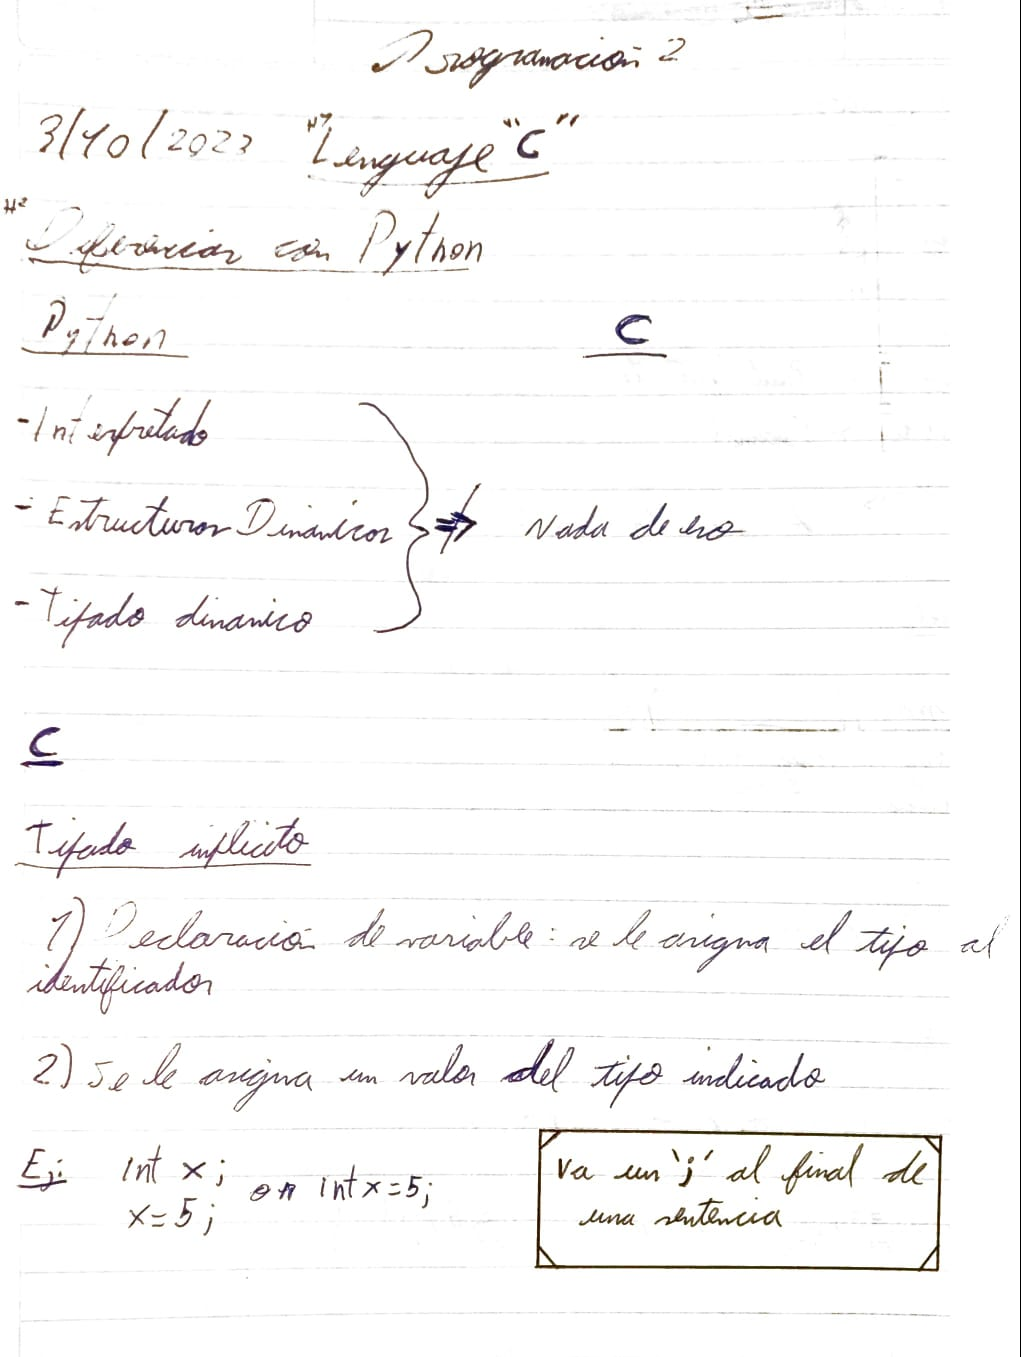 Programación 2
3/10/2023 "Lenguaje "C"
H1
H2
Diferencias con Python
Python C
-Interpretado
- Estructuras Dinámicas ⇏ Nada de eso
- Tipado dinamico
C
Tipado inplicito
1) Declaración de variable: se le asigna el tipo al
identificador
2) Se le asigna un valor del tipo indicado
Ej: int x; or int x=5;
x=5;
Va un ';' al final de
una sentencia